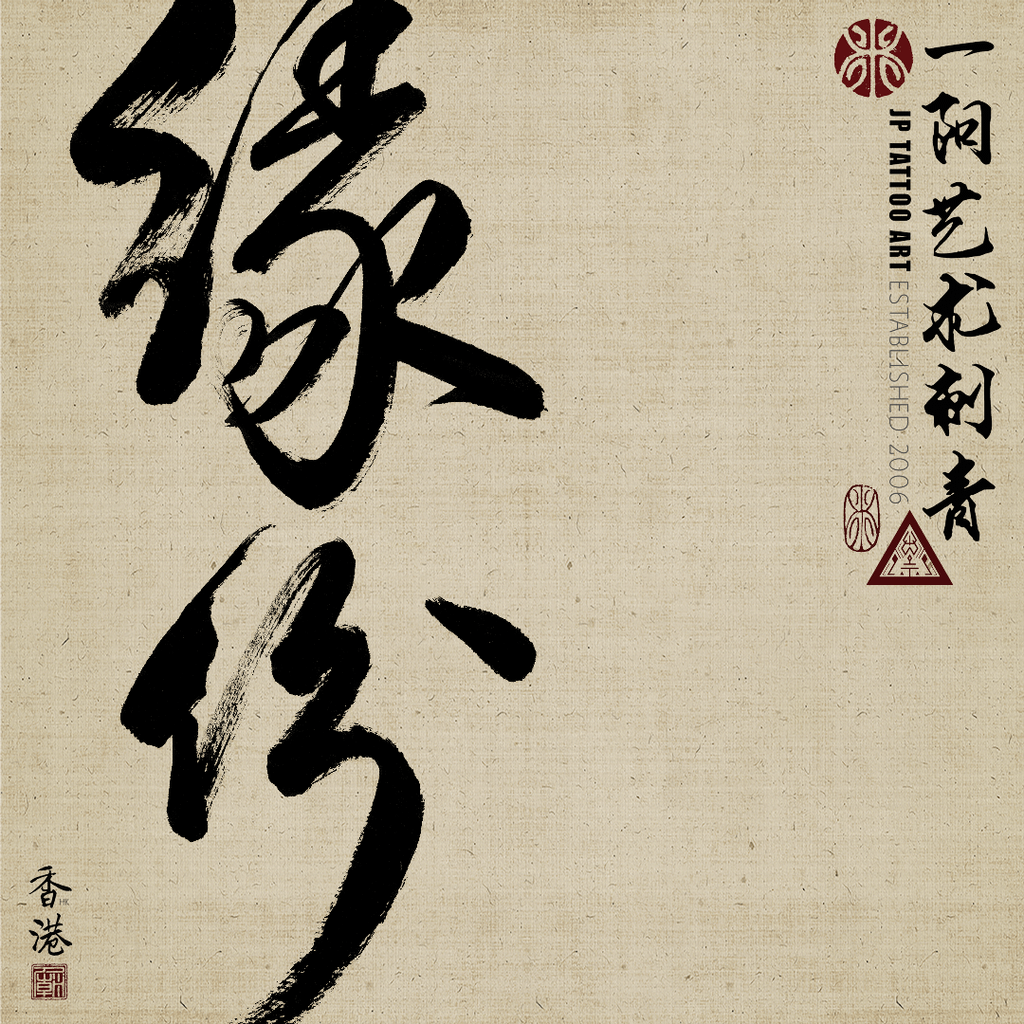 一阿艺术刺青
JP TATTOO ART ESTABLISHED 2006
缘份
香港
HK